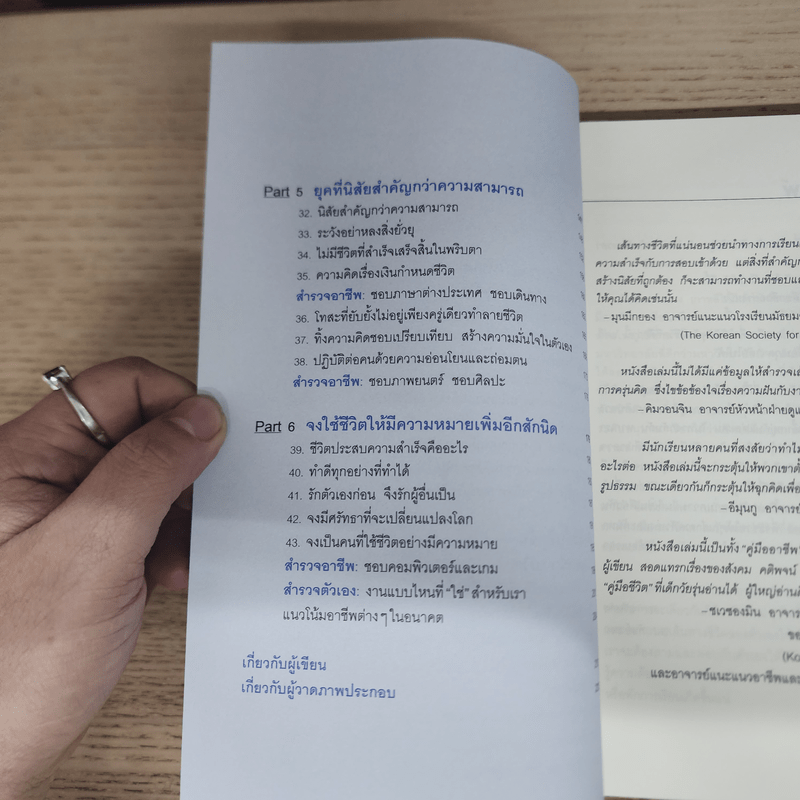 Part 5 ยุคที่นิสัยสำคัญกว่าความสามารถ
32. นิสัยสำคัญกว่าความสามารถ
33. ระวังอย่าหลงสิ่งยั่วยุ
34. ไม่มีชีวิตที่สำเร็จเสร็จสิ้นในพริบตา
35. ความคิดเรื่องเงินกำหนดชีวิต
สำรวจอาชีพ: ชอบภาษาต่างประเทศ ชอบเดินทาง
36. โทสะที่ยับยั้งไม่อยู่เพียงครู่เดียวทำลายชีวิต
37. ทิ้งความคิดชอบเปรียบเทียบ สร้างความมั่นใจในตัวเอง
38. ปฏิบัติต่อคนด้วยความอ่อนโยนและถ่อมตน
สำรวจอาชีพ: ชอบภาพยนตร์ ชอบศิลปะ
Part 6 จงใช้ชีวิตให้มีความหมายเพิ่มอีกสักนิด
39. ชีวิตประสบความสำเร็จคืออะไร
40. ทำดีทุกอย่างที่ทำได้
41. รักตัวเองก่อน จึงรักผู้อื่นเป็น
42. จงมีศรัทธาที่จะเปลี่ยนแปลงโลก
43. จงเป็นคนที่ใช้ชีวิตอย่างมีความหมาย
สำรวจอาชีพ: ชอบคอมพิวเตอร์และเกม
สำรวจตัวเอง: งานแบบไหนที่ "ใช่" สำหรับเรา
แนวโน้มอาชีพต่างๆ ในอนาคต
เกี่ยวกับผู้เขียน
เกี่ยวกับผู้วาดภาพประกอบ
เส้นทางชีวิตที่แน่นอนช่วยนำทางการเรียน
ความสำเร็จกับการสอบเข้าด้วย แต่สิ่งที่สำคัญ
สร้างนิสัยที่ถูกต้อง ก็จะสามารถทำงานที่ชอบแล
ให้คุณได้คิดเช่นนั้น
– มุนมีกยอง อาจารย์แนะแนวโรงเรียนมัธยม
(The Korean Society for
หนังสือเล่มนี้ไม่ได้มีแค่ข้อมูลให้สำรวจเ
การครุ่นคิด ซึ่งไขข้อข้องใจเรื่องความฝันกับงา
– คิมวอนจิน อาจารย์หัวหน้าฝ่ายดูแ
มีนักเรียนหลายคนที่สงสัยว่าทำไม
อะไรต่อ หนังสือเล่มนี้จะกระตุ้นให้พวกเขาต
รูปธรรม ขณะเดียวกันก็กระตุ้นให้ฉุกคิดเพื่อ
– อีมุนกู อาจารย์
หนังสือเล่มนี้เป็นทั้ง "คู่มืออาชีพ
ผู้เขียน สอดแทรกเรื่องของสังคม คติพจน์
"คู่มือชีวิต" ที่เด็กวัยรุ่นอ่านได้ ผู้ใหญ่อ่าน
– ชเวซองมิน อาจาร
ขอ
(Ko
และอาจารย์แนะแนวอาชีพและ